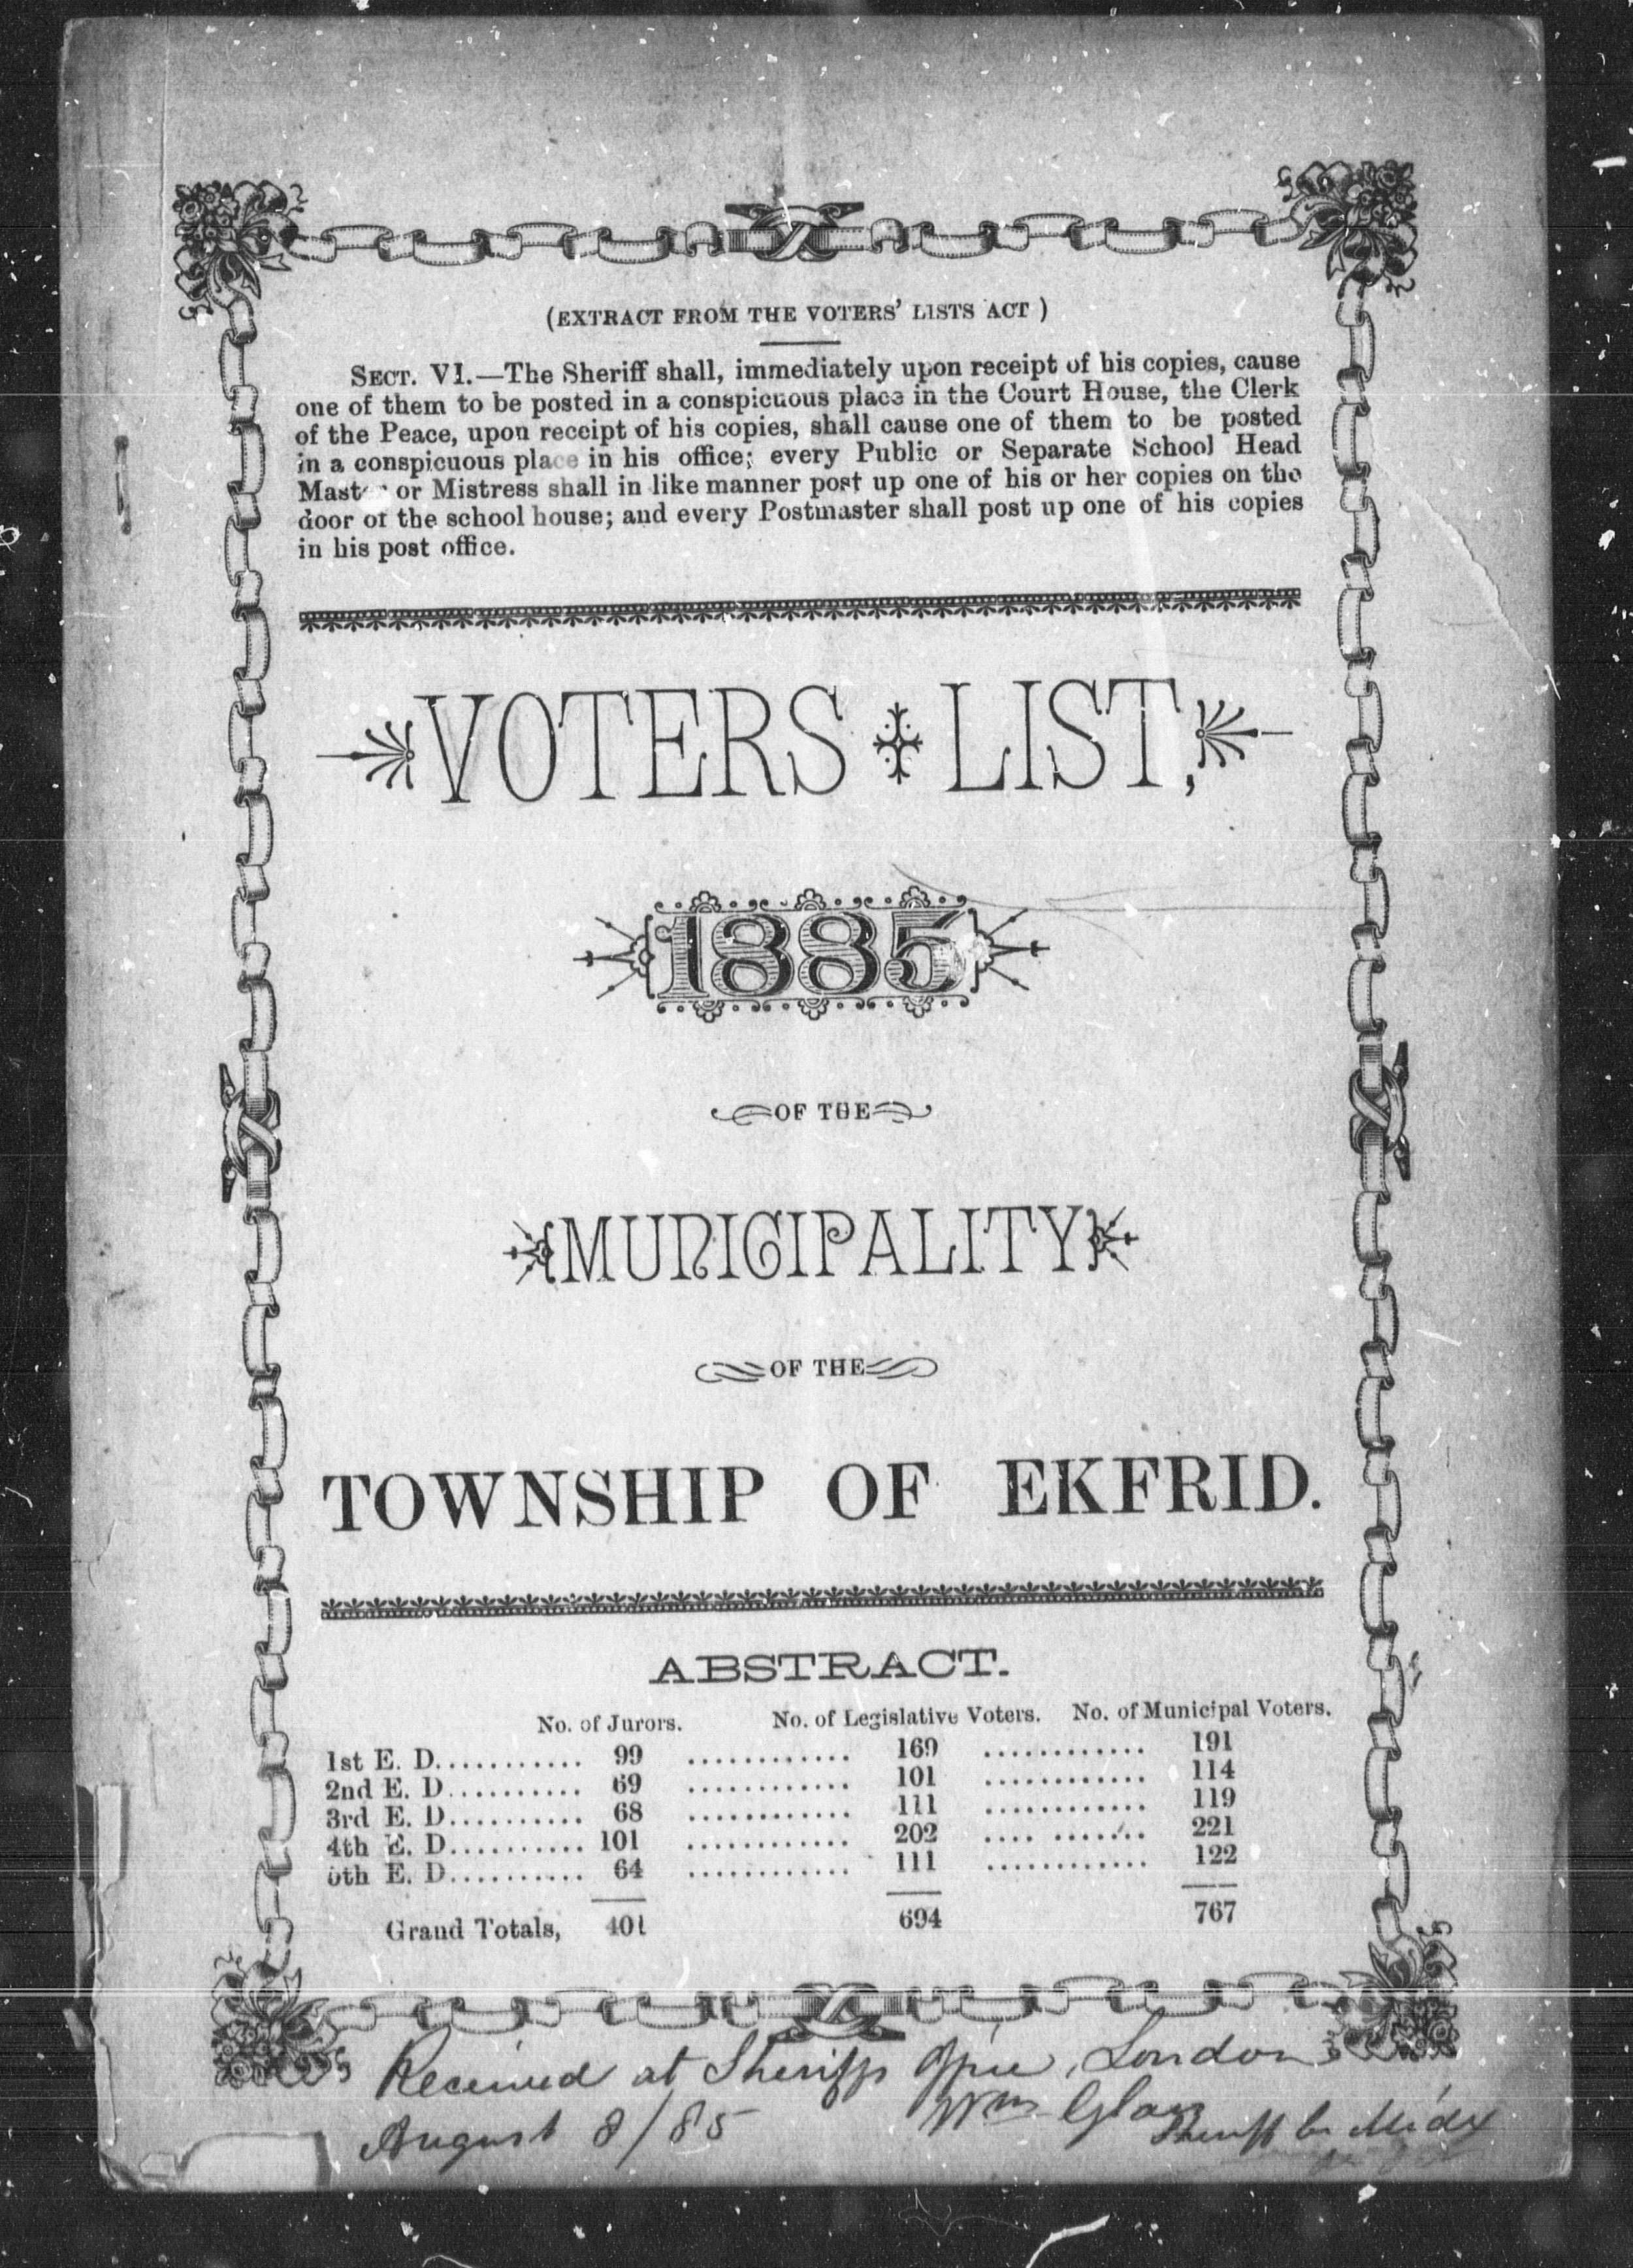 (EXTRACT FROM THE VOTERS' LISTS ACT )
SECT. VI.—The Sheriff shall, immediately upon receipt of his copies, cause
one of them to be posted in a conspicuous place in the Court House, the Clerk
of the Peace, upon receipt of his copies, shall cause one of them to be posted
in a conspicuous place in his office; every Public or Separate School Head
Master or Mistress shall in like manner post up one of his or her copies on the
door of the school house; and every Postmaster shall post up one of his copies
in his post office.
VOTERS LIST,
1885
OF THE
MUNICIPALITY
OF THE
TOWNSHIP OF EKFRID.
ABSTRACT.
No. of Jurors. No. of Legislative Voters. No. of Municipal Voters.
1st E. D........... 99 ............ 169 ............ 191
2nd E. D.......... 69 ............ 101 ............ 114
3rd E. D.......... 68 ............ 111 ............ 119
4th E. D.......... 101 ............ 202 .... ....... 221
5th E. D.......... 64 ............ 111 ............ 122
Grand Totals, 401 694 767
Received at Sheriffs Office, London
August 8/85 Wm Glass
Sheriff Co Midx